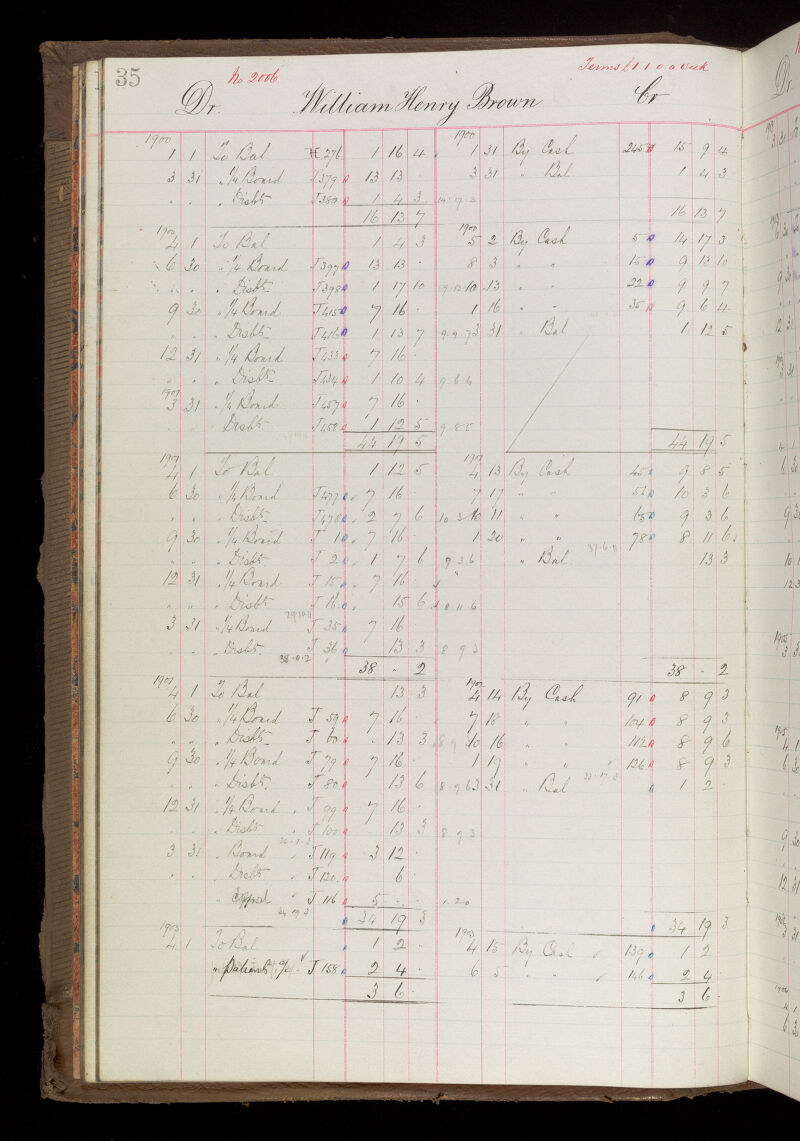 35 No 2006 Terms £1 1 0 a week
Dr. William Henry Brown Cr
1900 1900
1 1 To Bal 276 1 16 4 1 31 By Cash 245 15 9 4
3 31 " 1/4 Board J379 13 13 . 3 31 " Bal 1 4 3
" . " Disbts J380 1 4 3 14 . 17 . 3
16 13 7 16 13 7
1900 1900
4 1 To Bal 1 4 3 5 2 By Cash 5 14 17 3
6 30 " 1/4 Board J397 13 13 . 8 3 " " 15 9 13 10
" . " Disbts J398 1 17 10 9 13 10 10 13 " " 22 9 9 7
9 30 " 1/4 Board J415 7 16 . 1 16 " " 35 9 6 4
" " " Disbts J416 1 13 7 9 . 9 . 7 3 31 " Bal 1 12 5
12 31 " 1/4 Board J433 7 16 .
" " " Disbts J434 1 10 4 9 . 6 . 4
1901
3 31 " 1/4 Board J457 7 16 .
" Disbts J458 1 12 5 9 8 5
44 19 5 44 19 5
1901 1901
4 1 To Bal 1 12 5 4 13 By Cash 45 9 8 5
6 30 " 1/4 Board J477 7 16 . 7 17 " " 56 10 3 6
" " " Disbts J478 2 7 6 10 3 6 10 11 " " 65 9 3 6
9 30 " 1/4 Board J 1 7 16 . 1 20 " " 78 8 11 6
37 . 6 . 11
" " " Disbts J 2 1 7 6 9 3 6 " Bal 13 3
12 31 " 1/4 Board J 15 7 16 .
" " " Disbts J 16 15 6 8 11 6
3 31 " 1/4 Board J 35 7 16
" . " Disbts. J 36 13 3 8 9 3
38 . 0 . 2
38 - 2 38 - 2
1902 1902
4 1 To Bal 13 3 4 14 By Cash 91 8 9 3
6 30 " 1/4 Board J 59 7 16 . 7 18 " " 104 8 9 3
" " " Disbts J 60 . 13 3 8 9 10 16 " " 112 8 9 6
9 30 " 1/4 Board J 79 7 16 . 1 19 " " 126 8 9 3
" . " Disbts. J 80 13 6 8 . 9 . 6 3 31 " Bal 1 2 .
12 31 " 1/4 Board " J 99 7 16 .
" Disbts " J 100 13 3 8 9 3
3 31 " Board " J 119 3 12 .
" . " Disbts " J 120 6 .
" J 116 5 . . 1 . 2 0
34 19 3
34 19 3 34 19 3
1903 1903
4 1 To Bal 1 2 . 4 15 By Cash 139 1 2
" Patients a/c J 158 2 4 . 6 5 " " 146 2 4
3 6 . 3 6 .